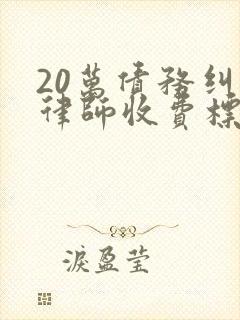 20萬債務糾
律師收費標
淚盈莹